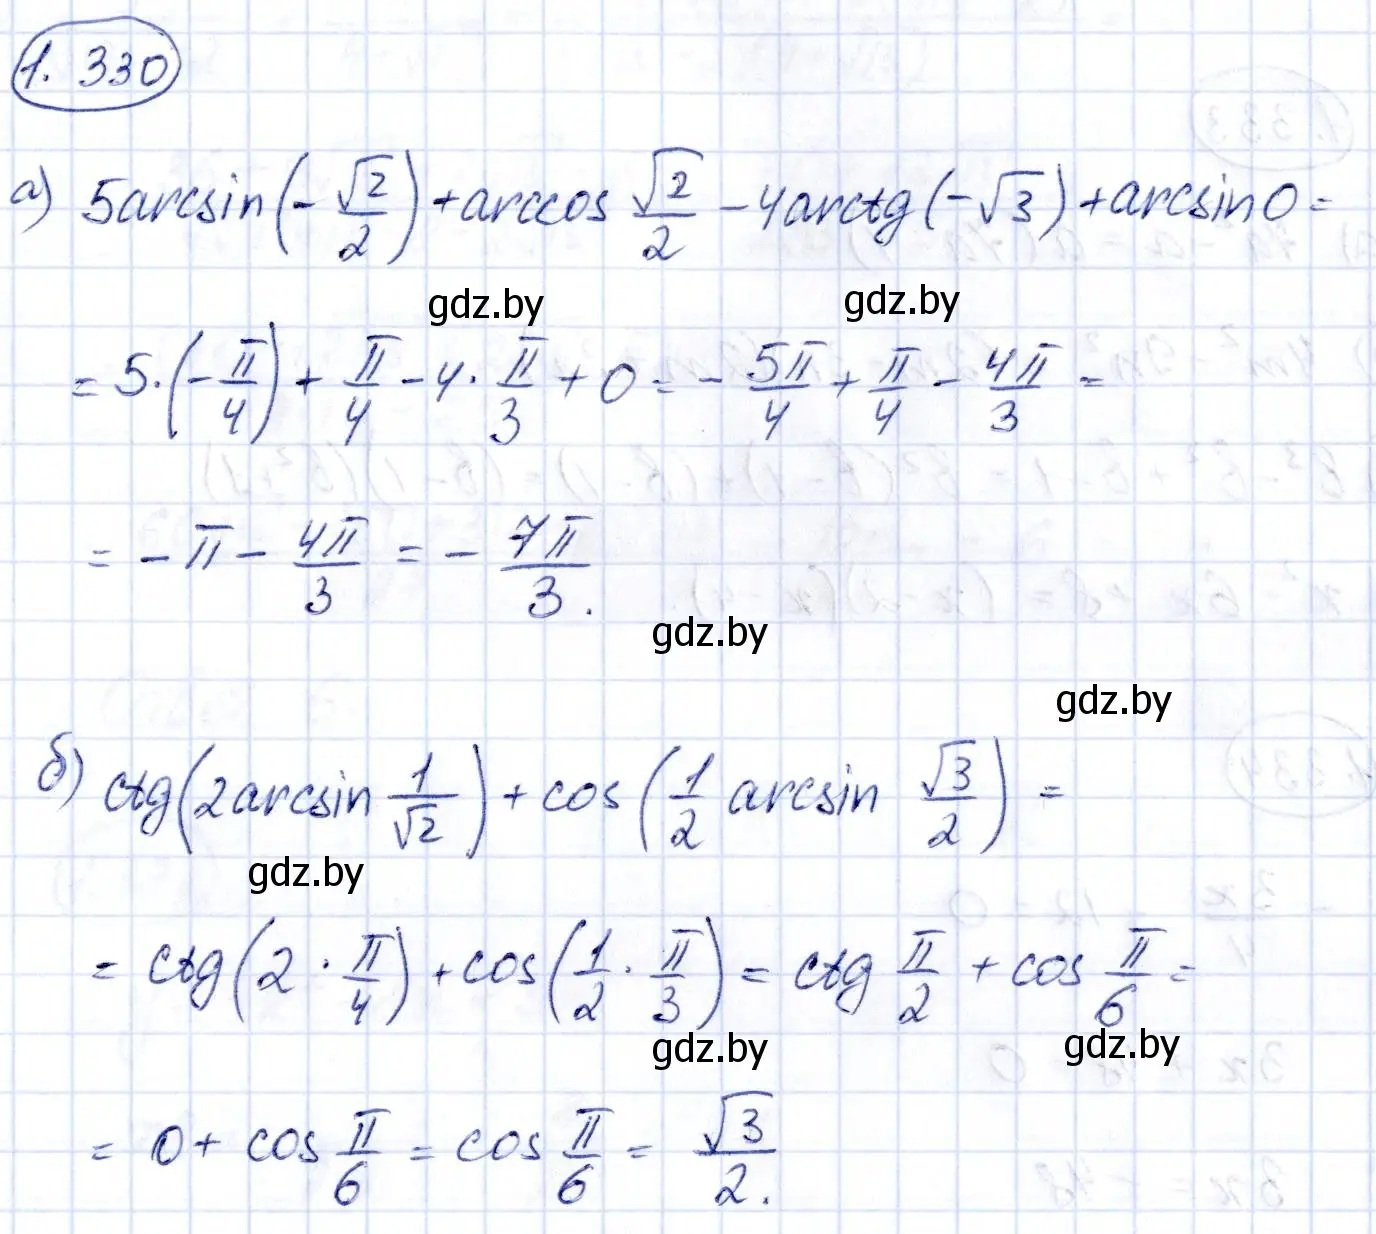 1.330
а) 5arcsin(-√2/2)+arccos √2/2 -4arctg(-√3)+arcsin0=
gdz.by gdz.by
= 5·(-π/4)+ π/4 -4· π/3 + 0 = - 5π/4 + π/4 - 4π/3 =
= -π- 4π/3 = - 7π/3.
gdz.by
gdz.by
б) ctg(2arcsin 1/√2)+cos(1/2 arcsin √3/2) =
gdz.by
= ctg(2 · π/4)+cos(1/2 · π/3) = ctg π/2 + cos π/6 =
gdz.by gdz.by
= 0+ cos π/6 = cos π/6 = √3/2.